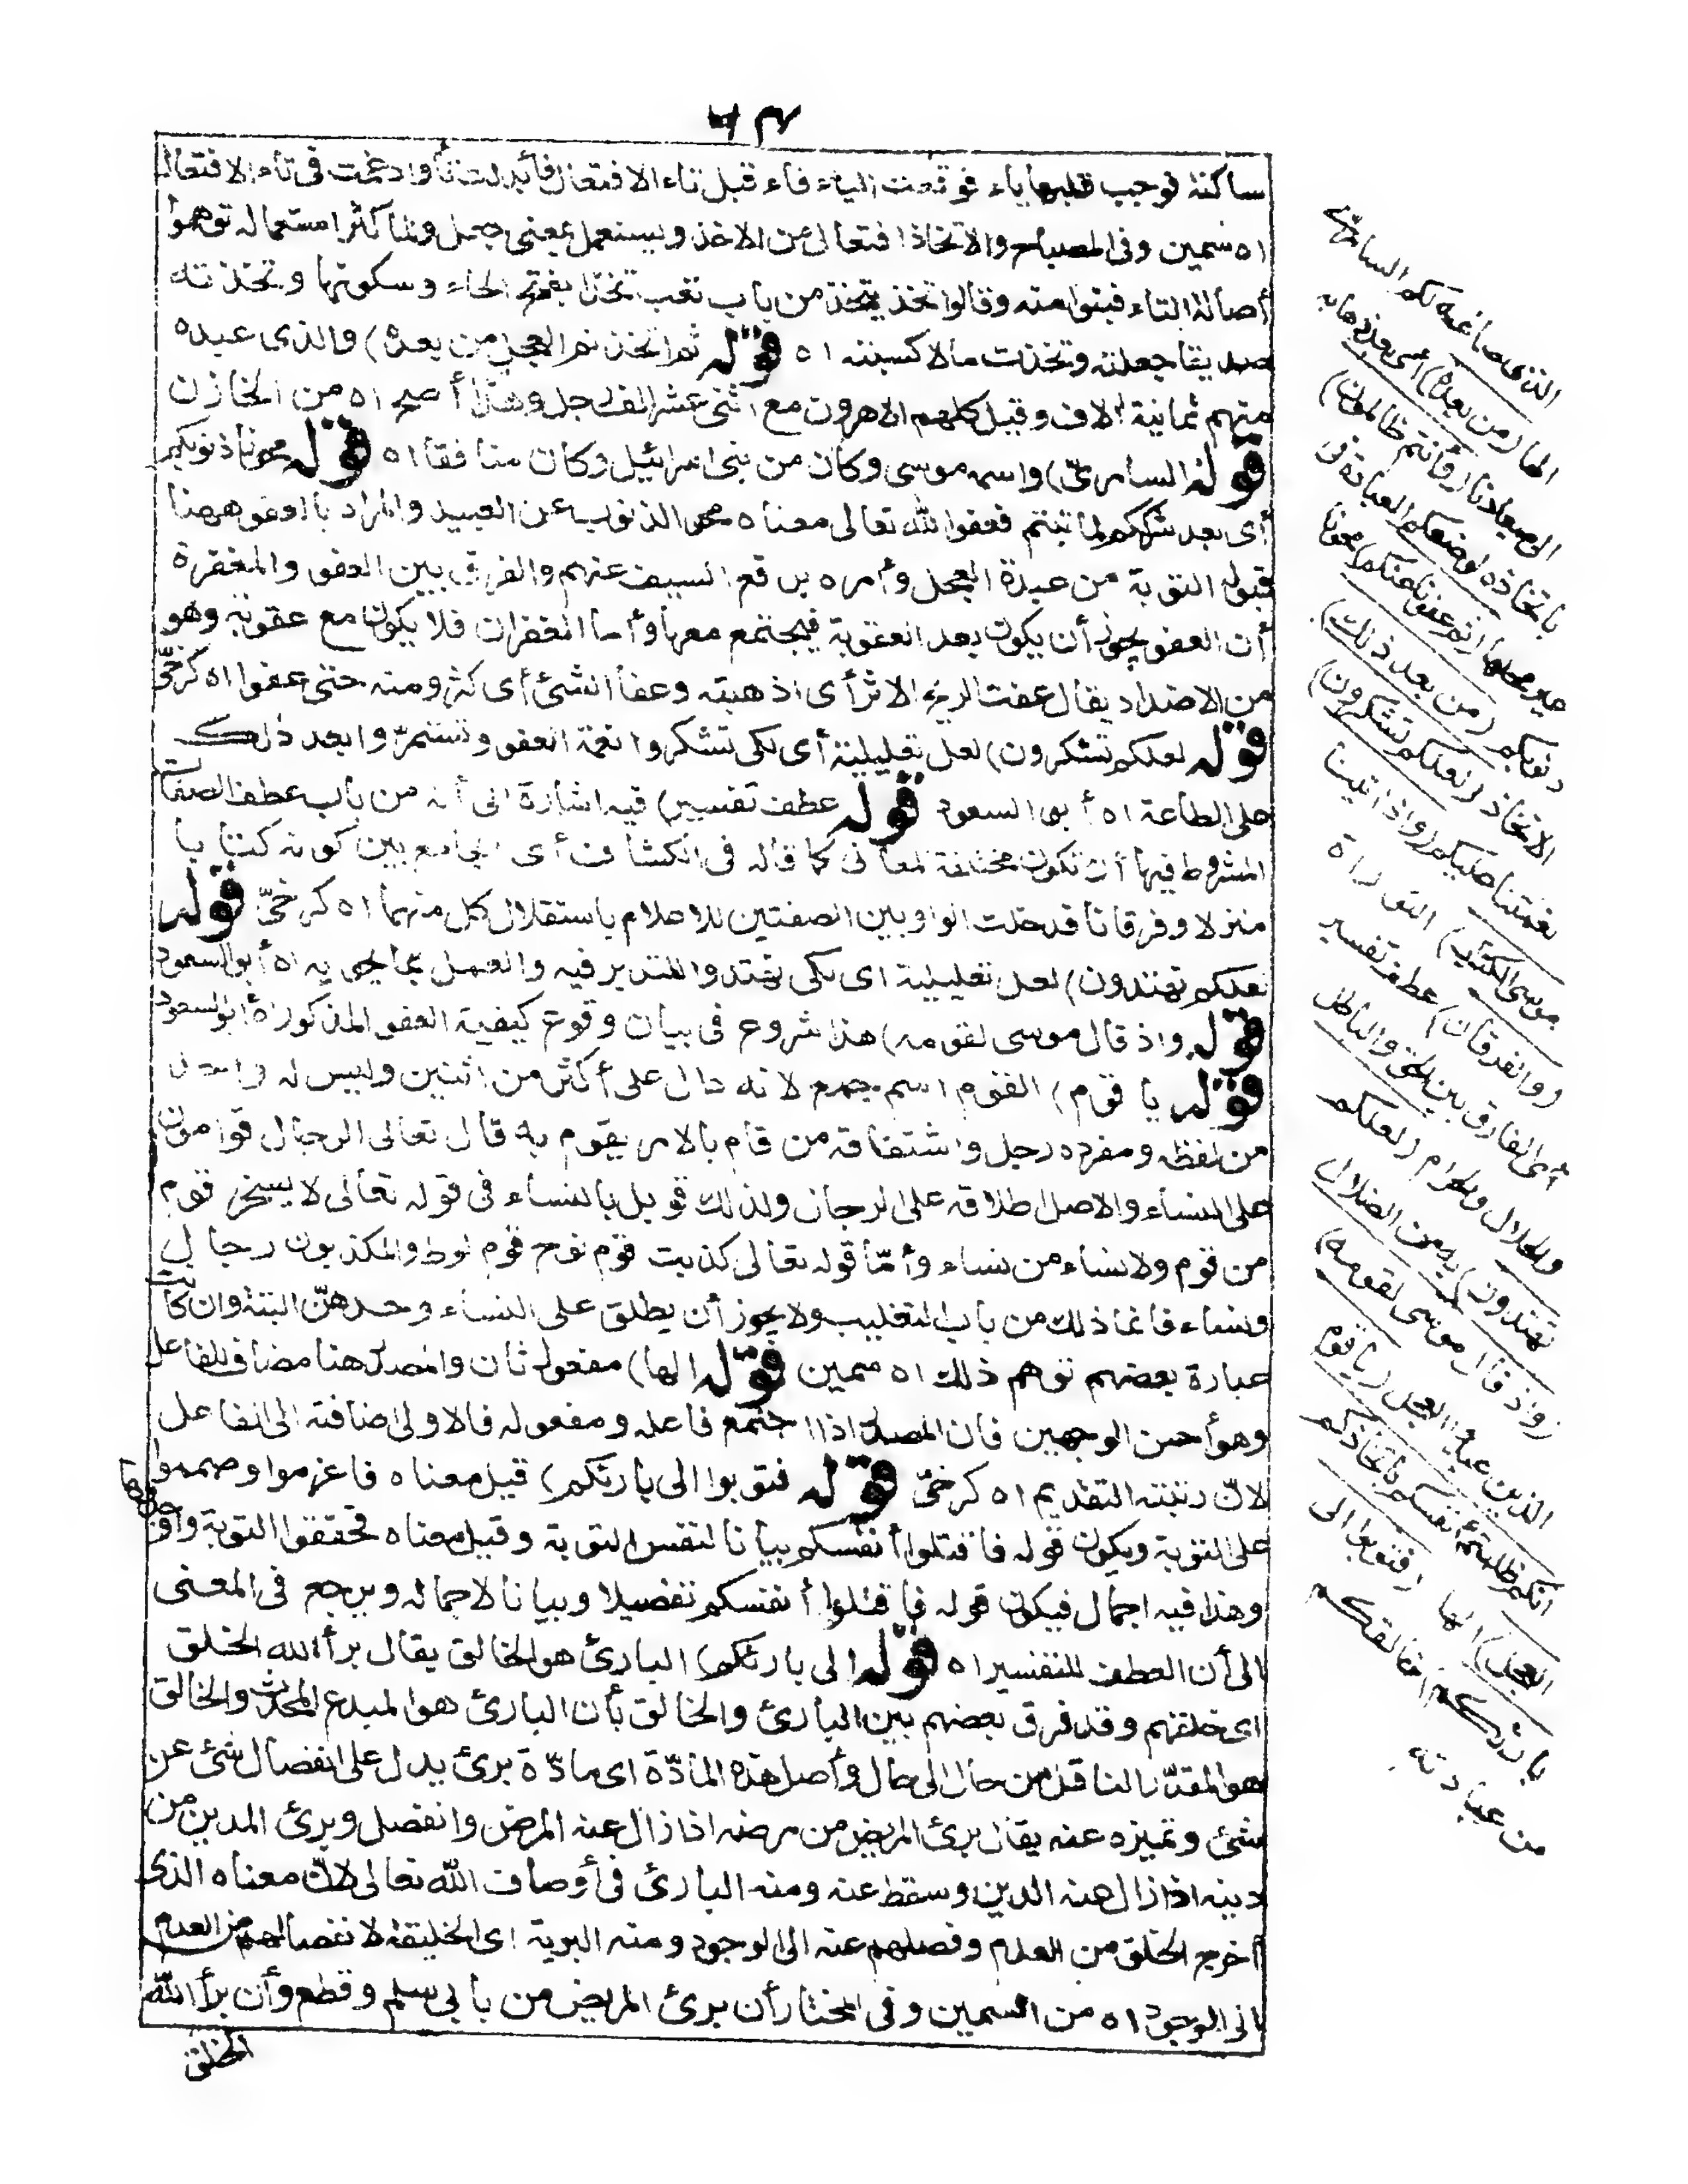 ٦٣
ساكنة فوجب قلبها ياء فوقعت الياء فاء قبل تاء الافتعال فأبدلت تأ وادغمت فى تاء الافتعال
اه سمين وفى المصباح والاتخاذ افتعال من الاخذ ويستعمل بمعنى جعل ولما كثر استعماله توهموا
أصالة التاء فبنوا منه وقالوا تخذ يتخذ من باب تعب تخذا بفتح الخاء وسكونها وتخذته
صديقا جعلته وتخذت مالا كسبته اه قوله ثم اتخذتم العجل من بعده) والذى عبده
منهم ثمانية الاف وقيل كلهم الا هرون مع اثنى عشر الف رجل وهذا أصح اه من الخازن
قوله السامرىّ) واسمه موسى وكان من بنى اسرائيل وكان منافقا اه قوله محونا ذنوبكم
أى بعد شرككم لما تبتم فعفو الله تعالى معناه محو الذنوب عن العبيد والمراد بالعفو ههنا
قبول التوبة من عبدة العجل وأمره برفع السيف عنهم والفرق بين العفو والمغفرة
أن العفو يجوز أن يكون بعد العقوبة فيجتمع معها وأما الغفران فلا يكون مع عقوبة وهو
من الاضداد يقال عفت الريح الاثر أى اذهبته وعفا الشئ أى كثر ومنه حتى عفوا اه كرخىّ
قوله لعلكم تشكرون) لعل تعليلية أى لكى تشكروا نعمة العفو وتستمرّوا بعد ذلك
على الطاعة اه أبو السعود قوله عطف تفسير) فيه اشارة الى أنه من باب عطف الصفات
المشروط فيها أن تكون مختلفة المعانى كما قاله فى الكشاف أى الجامع بين كونه كتابا
منزلا وفرقانا فدخلت الواو بين الصفتين للاعلام باستقلال كل منهما اه كرخىّ قوله
لعلكم تهتدون) لعل تعليلية اى لكى تهتدوا للتدبر فيه والعمل بما يحويه اه أبو السعود
قوله واذ قال موسى لقومه) هذا شروع فى بيان وقوع كيفية العفو المذكور اه أبو السعود
قوله يا قوم) القوم اسم جمع لانه دال على أكثر من اثنين وليس له واحد
من لفظه ومفرده رجل واشتقاقه من قام بالامر يقوم به قال تعالى الرجال قوامون
على النساء والاصل اطلاقه على الرجال ولذلك قوبل بالنساء فى قوله تعالى لا يسخر قوم
من قوم ولا نساء من نساء وأمّا قوله تعالى كذبت قوم نوح قوم لوط والمكذبون رجال
ونساء فانما ذلك من باب التغليب ولا يجوز أن يطلق على النساء وحدهنّ البتة وان كانت
عبارة بعضهم توهم ذلك اه سمين قوله الها) مفعول ثان والمصدر هنا مضاف للفاعل
وهو أحسن الوجهين فان المصدر اذا اجتمع فاعله ومفعوله فالاولى اضافته الى الفاعل
لانّ رتبته التقديم اه كرخىّ قوله فتوبوا الى بارئكم) قيل معناه فاعزموا وصمموا
على التوبة ويكون قوله فاقتلوا أنفسكم بيانا لنفس التوبة وقيل معناه فحققوا التوبة وأوقعوها
وهذا فيه اجمال فيكون قوله فاقتلوا أنفسكم تفصيلا وبيانا لاجماله ويرجع فى المعنى
الى أن العطف للتفسير اه قوله الى بارئكم) البارئ هو الخالق يقال برأ الله الخلق
اى خلقهم وقد فرق بعضهم بين البارئ والخالق بأن البارئ هو المبدع المحدث والخالق
هو المقدّر الناقل من حال الى حال وأصل هذه المادّة اى مادّة برئ يدل على انفصال شئ عن
شئ وتميزه عنه يقال برئ المريض من مرضه اذا زال عنه المرض وانفصل وبرئ المدين من
دينه اذا زال عنه الدين وسقط عنه ومنه البارئ فى أوصاف الله تعالى لانّ معناه الذى
أخرج الخلق من العدم وفصلهم عنه الى الوجود ومنه البرية اى الخليقة لانفصالهم من العدم
الى الوجود اه من السمين وفى المختار أن برئ المريض من بابى سلم وقطع وأن برأ الله
الخلق
الذى صاغه لكم السامرىّ
الها (من بعده) أى بعد ذهابه
الى ميعادنا (وأنتم ظالمون)
باتخاذه لوضعكم العبادة فى
غير محلها (ثم عفونا عنكم) محونا
ذنوبكم (من بعد ذلك)
الاتخاذ (لعلكم تشكرون)
نعمتنا عليكم (واذ اتينا
موسى الكتاب) التوراة
(والفرقان) عطف تفسير
أى الفارق بين الحق والباطل
والحلال والحرام (لعلكم
تهتدون) به من الضلال
(واذ قال موسى لقومه)
الذين عبدوا العجل (يا قوم
انكم ظلمتم أنفسكم باتخاذكم
العجل) الها (فتوبوا الى
بارئكم) خالقكم
من عبادته